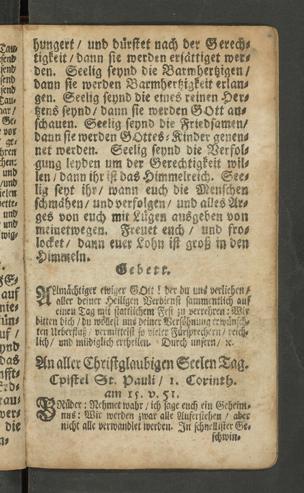 hungert / und dürstet nach der Gerech-
tigkeit / dann sie werden ersättiget wer-
den. Seelig seynd die Barmhertzigen /
dann sie werden Barmhertzigkeit erlan-
gen. Seelig seynd die eines reinen Her-
tzens seynd / dann sie werden GOtt an-
schauen. Seelig seynd die Friedsamen /
dann sie werden GOttes-Kinder genennt
werden. Seelig seynd die Verfol-
gung leyden um der Gerechtigkeit wil-
len / dann ihr ist das Himmelreich. See-
lig seyt ihr / wann euch die Menschen
schmähen / und verfolgen / und alles Ar-
ges von euch mit Lügen ausgeben von
meinetwegen. Freuet euch / und fro-
locket / dann euer Lohn ist groß in den
Himmeln.
Gebett.
ALlmächtiger ewiger GOtt! der du uns verliehen /
aller deiner Heiligen Verdienst sammentlich auf
einen Tag mit stattlichem Fest zu verehren: Wir
bitten dich / du wöllest uns deiner Versöhnung erwünsch-
ten Ueberfluß / vermittelst so vieler Fürsprechern / reich-
lich / und mildiglich ertheilen. Durch unsern / ꝛc.
An aller Christglaubigen Seelen Tag.
Epistel St. Pauli / 1. Corinth.
am 15. v. 51.
BRüder: Nehmet wahr / ich sage euch ein Geheim-
nus: Wir werden zwar alle Auferstehen / aber
nicht alle verwandlet werden. In schnellister Ge-
schwin-